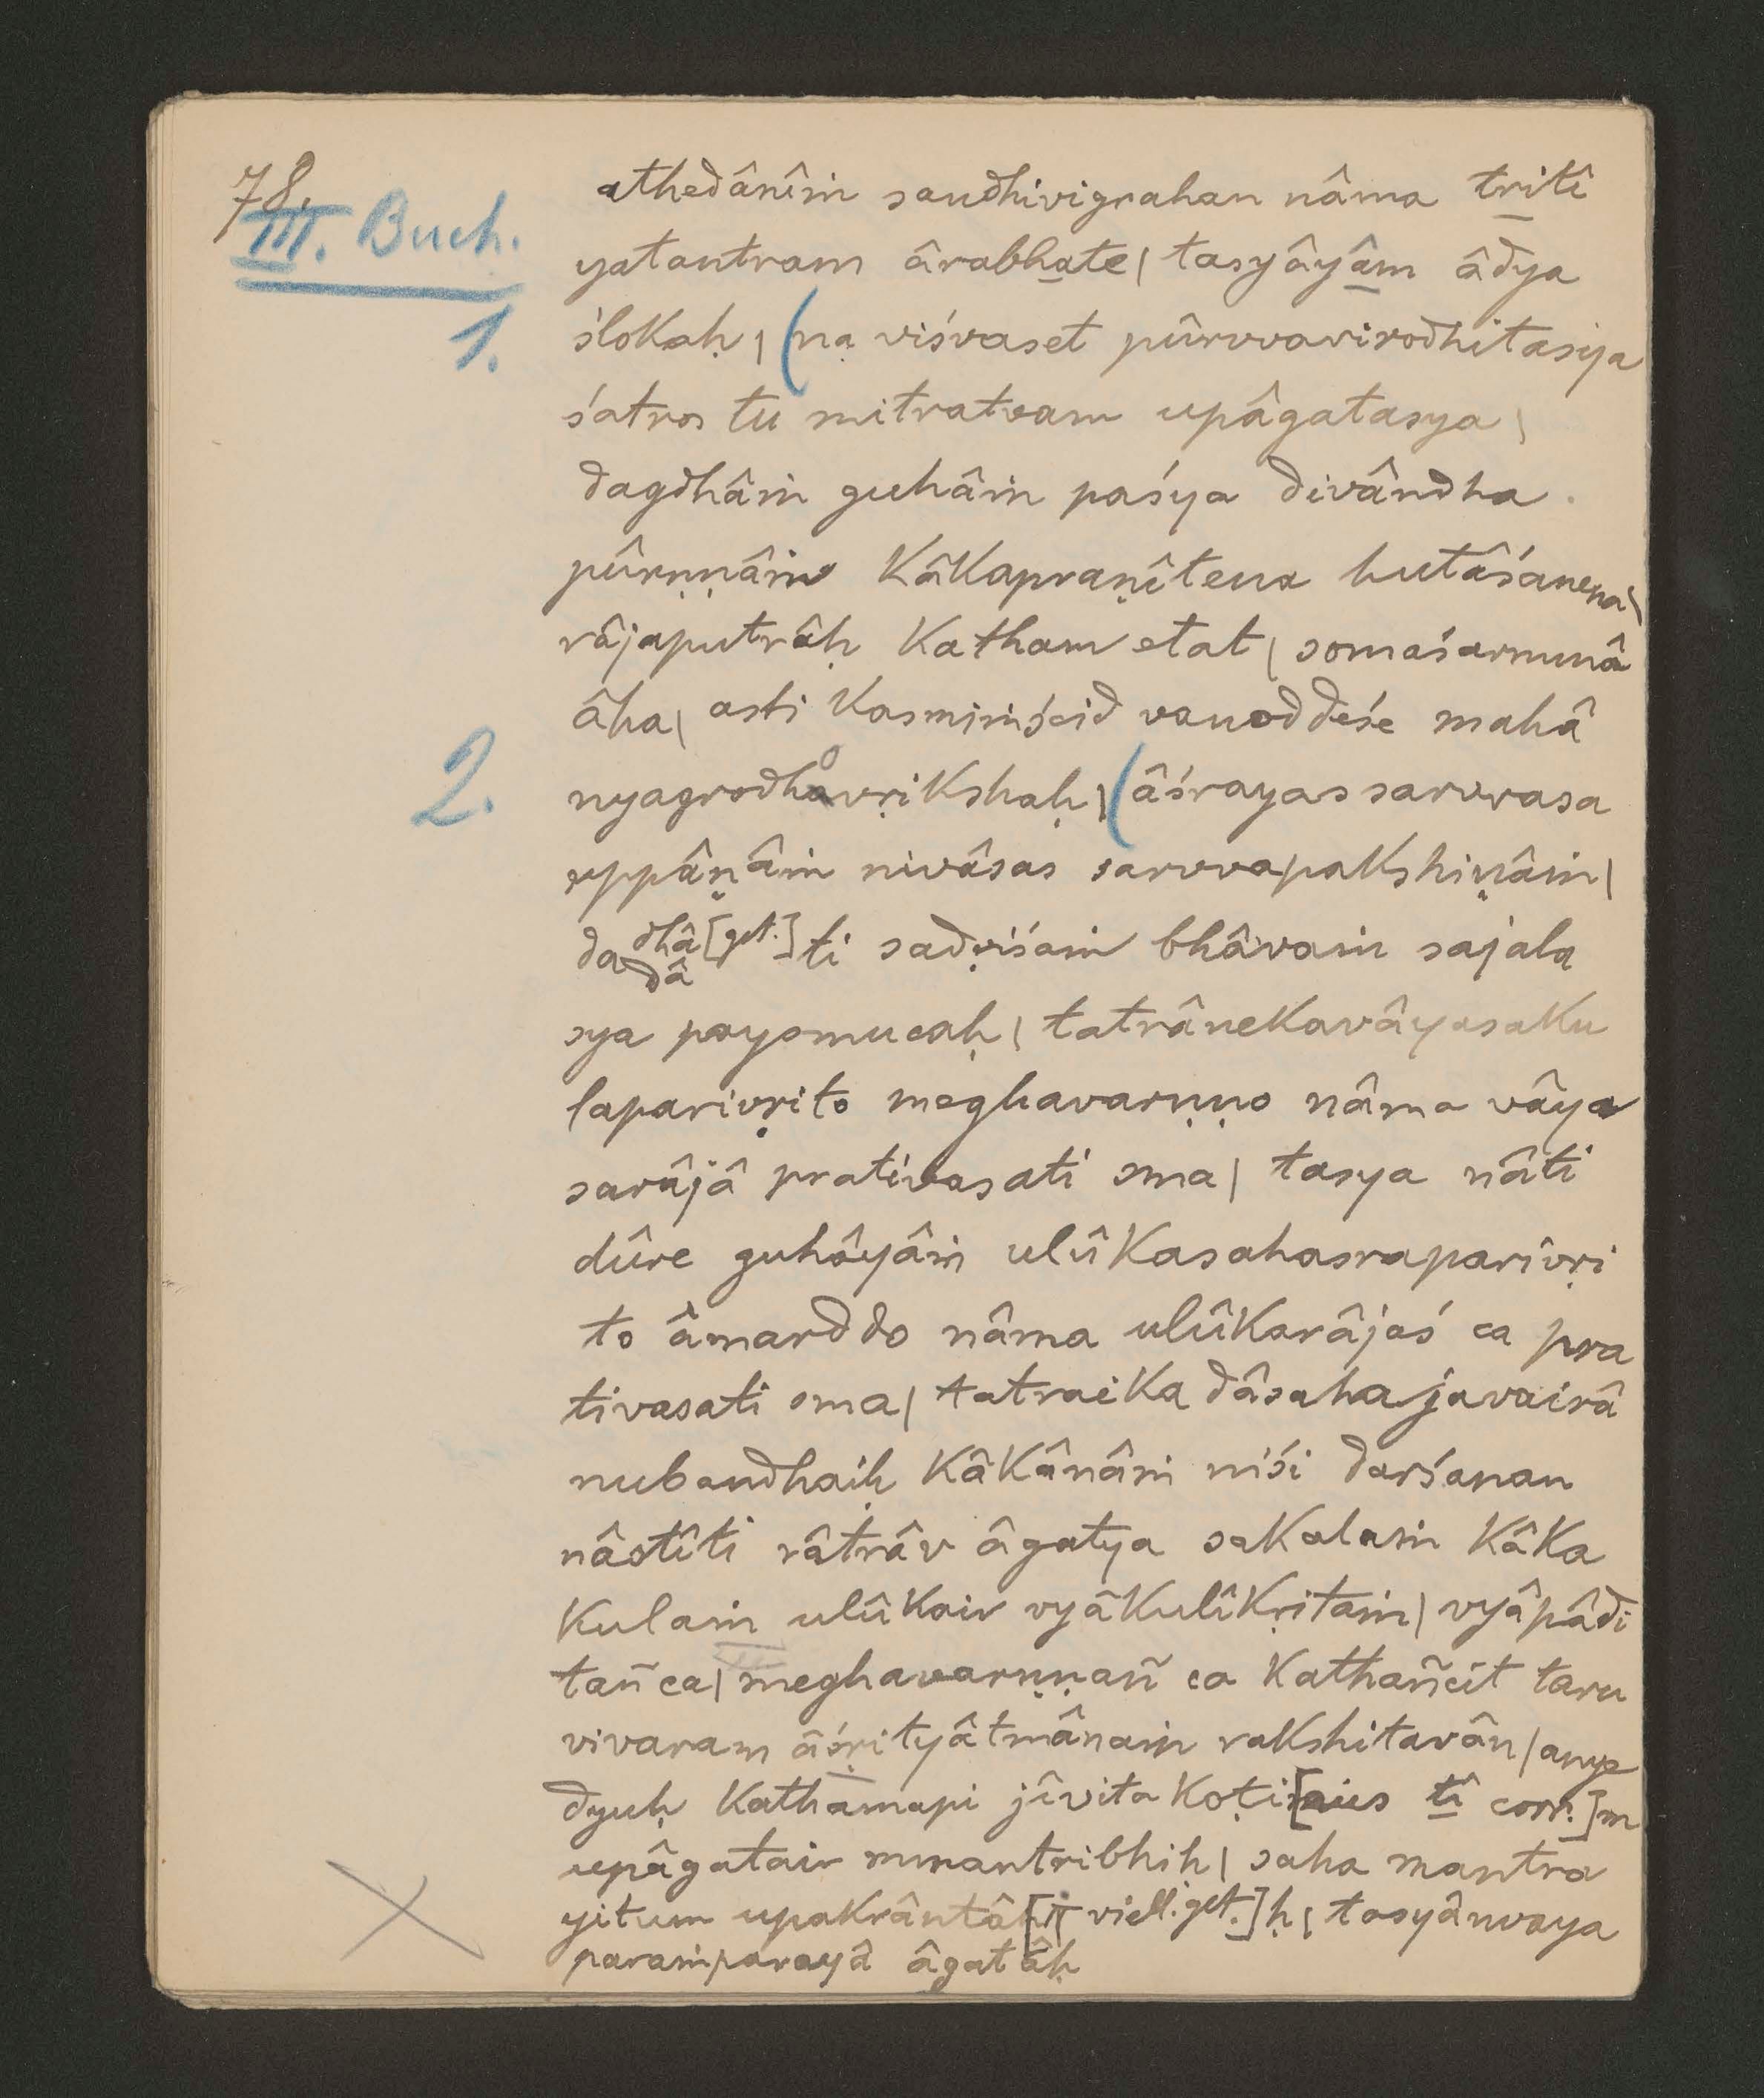 78.
III. Buch.
athedânîṁ sandhivigrahan nâma tritî
yatantram ârabhate | tasyâyâm âdya
1. ślokaḥ | (na viśvaset pûrvvavirodhitasya
śatros tu mitratvam upâgatasya |
dagdhâṁ guhâṁ paśya divândha
pûrṇṇâṁ kâkapraṇîtena hutâśanena |
râjaputrâḥ katham etat | somaśarmmâ
âha | asti kasmiṁścid vanoddeśe mahâ
2. nyagrodhovṛikshaḥ | (âśrayas sarvvasa
uppâṇâṁ nivâsas sarvvapakshiṇâṁ |
dadhâ [get.] dâ ti sadṛiśaṁ bhâvaṁ sajala
sya payomucaḥ | tatrânekavâyasaku
laparivṛito meghavarṇṇo nâma vâya
sarâjâ prativasati sma | tasya nâti
dûre guhâyâṁ ulûkasahasraparivṛi
to âmarddo nâma ulûkarâjaś ca pra
tivasati sma | tatraikadâsahajavairâ
nubandhaiḥ kâkânâṁ niśi darśanan
nâstîti râtrâv âgatya sakalaṁ kâka
kulaṁ ulûkair vyâkulîkṛitaṁ | vyâpâdi
tañ ca | meghavarṇṇañ ca kathañcit taru
vivaram âśṛityâtmânaṁ rakshitavân | anye
dyuḥ kathamapi jîvitakoṭi[aus tî corr.]m
upâgatair mmantribhiḥ | saha mantra
yitum upakrântâ[ḥ | viell. get.]ḥ | tasyânvaya
paraṁparayâ âgatâḥ